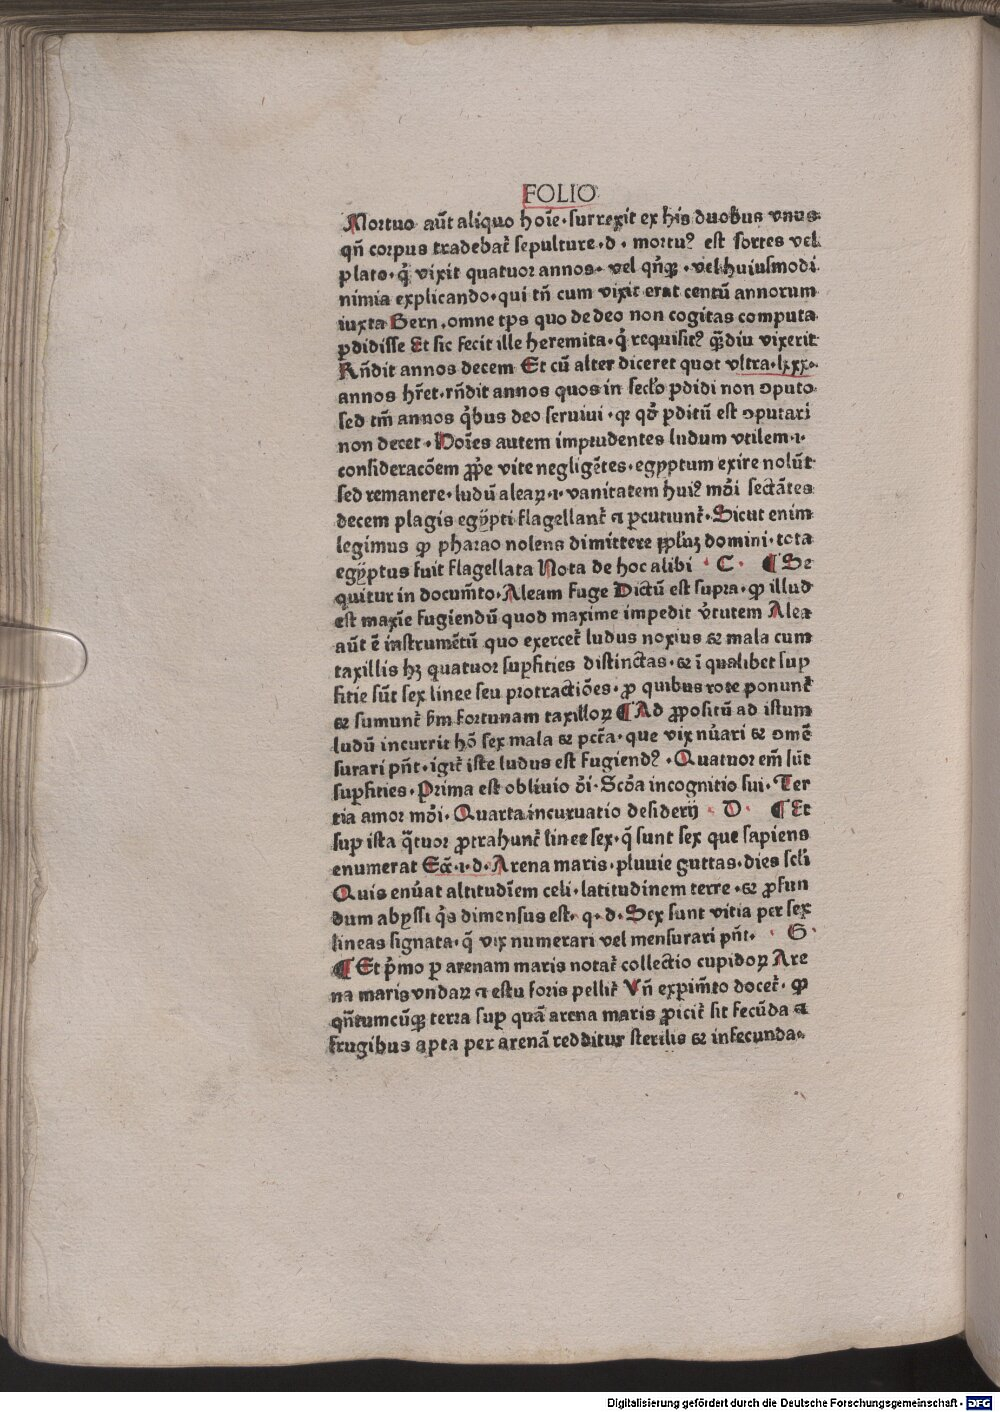 FOLIO
Mortuo aūt aliquo hoīe · surrexit ex his duobus vnus
qn̄ corpus tradebat᷑ sepulture · d · mortuꝰ est sortes vel
plato · q̇ vixit quatuor annos · vel qn̄qꝫ · vel huiusmodi
nimia explicando · qui tn̄ cum vixit erat centū annorum
iuxta Bern . omne tp̄s quo de deo non cogitas computa
ꝑdidisse Et sic fecit ille heremita · q̇ requisitꝰ qͣ̄diu vixerit
Rn̄dit annos decem Et cū alter diceret quot vltra · lxxx ·
annos hr̄et · rn̄dit annos quos in secl̓o ꝑdidi non ↄputo
sed tm̄ annos q̇bus deo seruiui · qꝛ qd̓ ꝑditū est ↄputari
non decet · Hoīes autem imprudentes ludum vtilem · i ·
consideracōem ꝓpe vite negligētes · egyptum exire nolūt
sed remanere · ludū aleaꝝ · i · vanitatem huiꝰ mōi sectātes
decem plagis egÿpti flagellant᷑ ⁊ ꝑcutiunt᷑ · Sicut enim
legimus ꝙ pharao nolens dimittere ppl̓uꝫ domini · tota
egÿptus fuit flagellata Nota de hoc alibi · C · ¶ Se
quitur in docum̄to · Aleam fuge Dictū est supra · ꝙ illud
est maxīe fugiendū quod maxime impedit v̓tutem Alea
aūt ē instrumētū quo exercet᷑ ludus noxius ⁊ mala cum
taxillis hꝫ quatuor suꝑfities distinctas · ⁊ ī qualibet suꝑ
fitie sūt sex linee seu protractiōes · ꝓ quibus rote ponunt᷑
⁊ sumunt᷑ bm̄ fortunam taxilloꝝ ¶ Ad ꝓpositū ad istum
ludū incurrit hō sex mala ⁊ pcc̄a · que vix nūari ⁊ ↄmē
surari pn̄t · igit᷑ iste ludus est fugiendꝰ · Quatuor em̄ sūt
suꝑfities · Prima est obliuio dī · Scōa incognitio sui · Ter
tia amor mōi · Quarta incuruatio desiderij · D · ¶ Et
suꝑ ista qͣtuor ꝓtrahunt᷑ linee sex · q̄ sunt sex que sapiens
enumerat Ecc̄ · i · d · Arena maris · pluuie guttas · dies scl̓i
Quis enūat altitudīem celi · latitudinem terre · ⁊ ꝓfun
dum abyssi q̇s dimensus est · q · d · Sex sunt vitia per sex
lineas signata · q̄ vix numerari vel mensurari pn̄t · · G ·
¶ Et p̓mo ꝑ arenam maris notat᷑ collectio cupidoꝝ Are
na maris vndaꝝ ⁊ estu foris pellit᷑ Vn̄ expim̄to docet᷑ · ꝙ
qn̄tumcūqꝫ terra suꝑ quā arena maris ꝓicit᷑ sit fecūda ⁊
frugibus apta per arenā redditur sterilis ⁊ infecunda ·
Digitalisierung gefördert durch die Deutsche Forschungsgemeinschaft - DFG